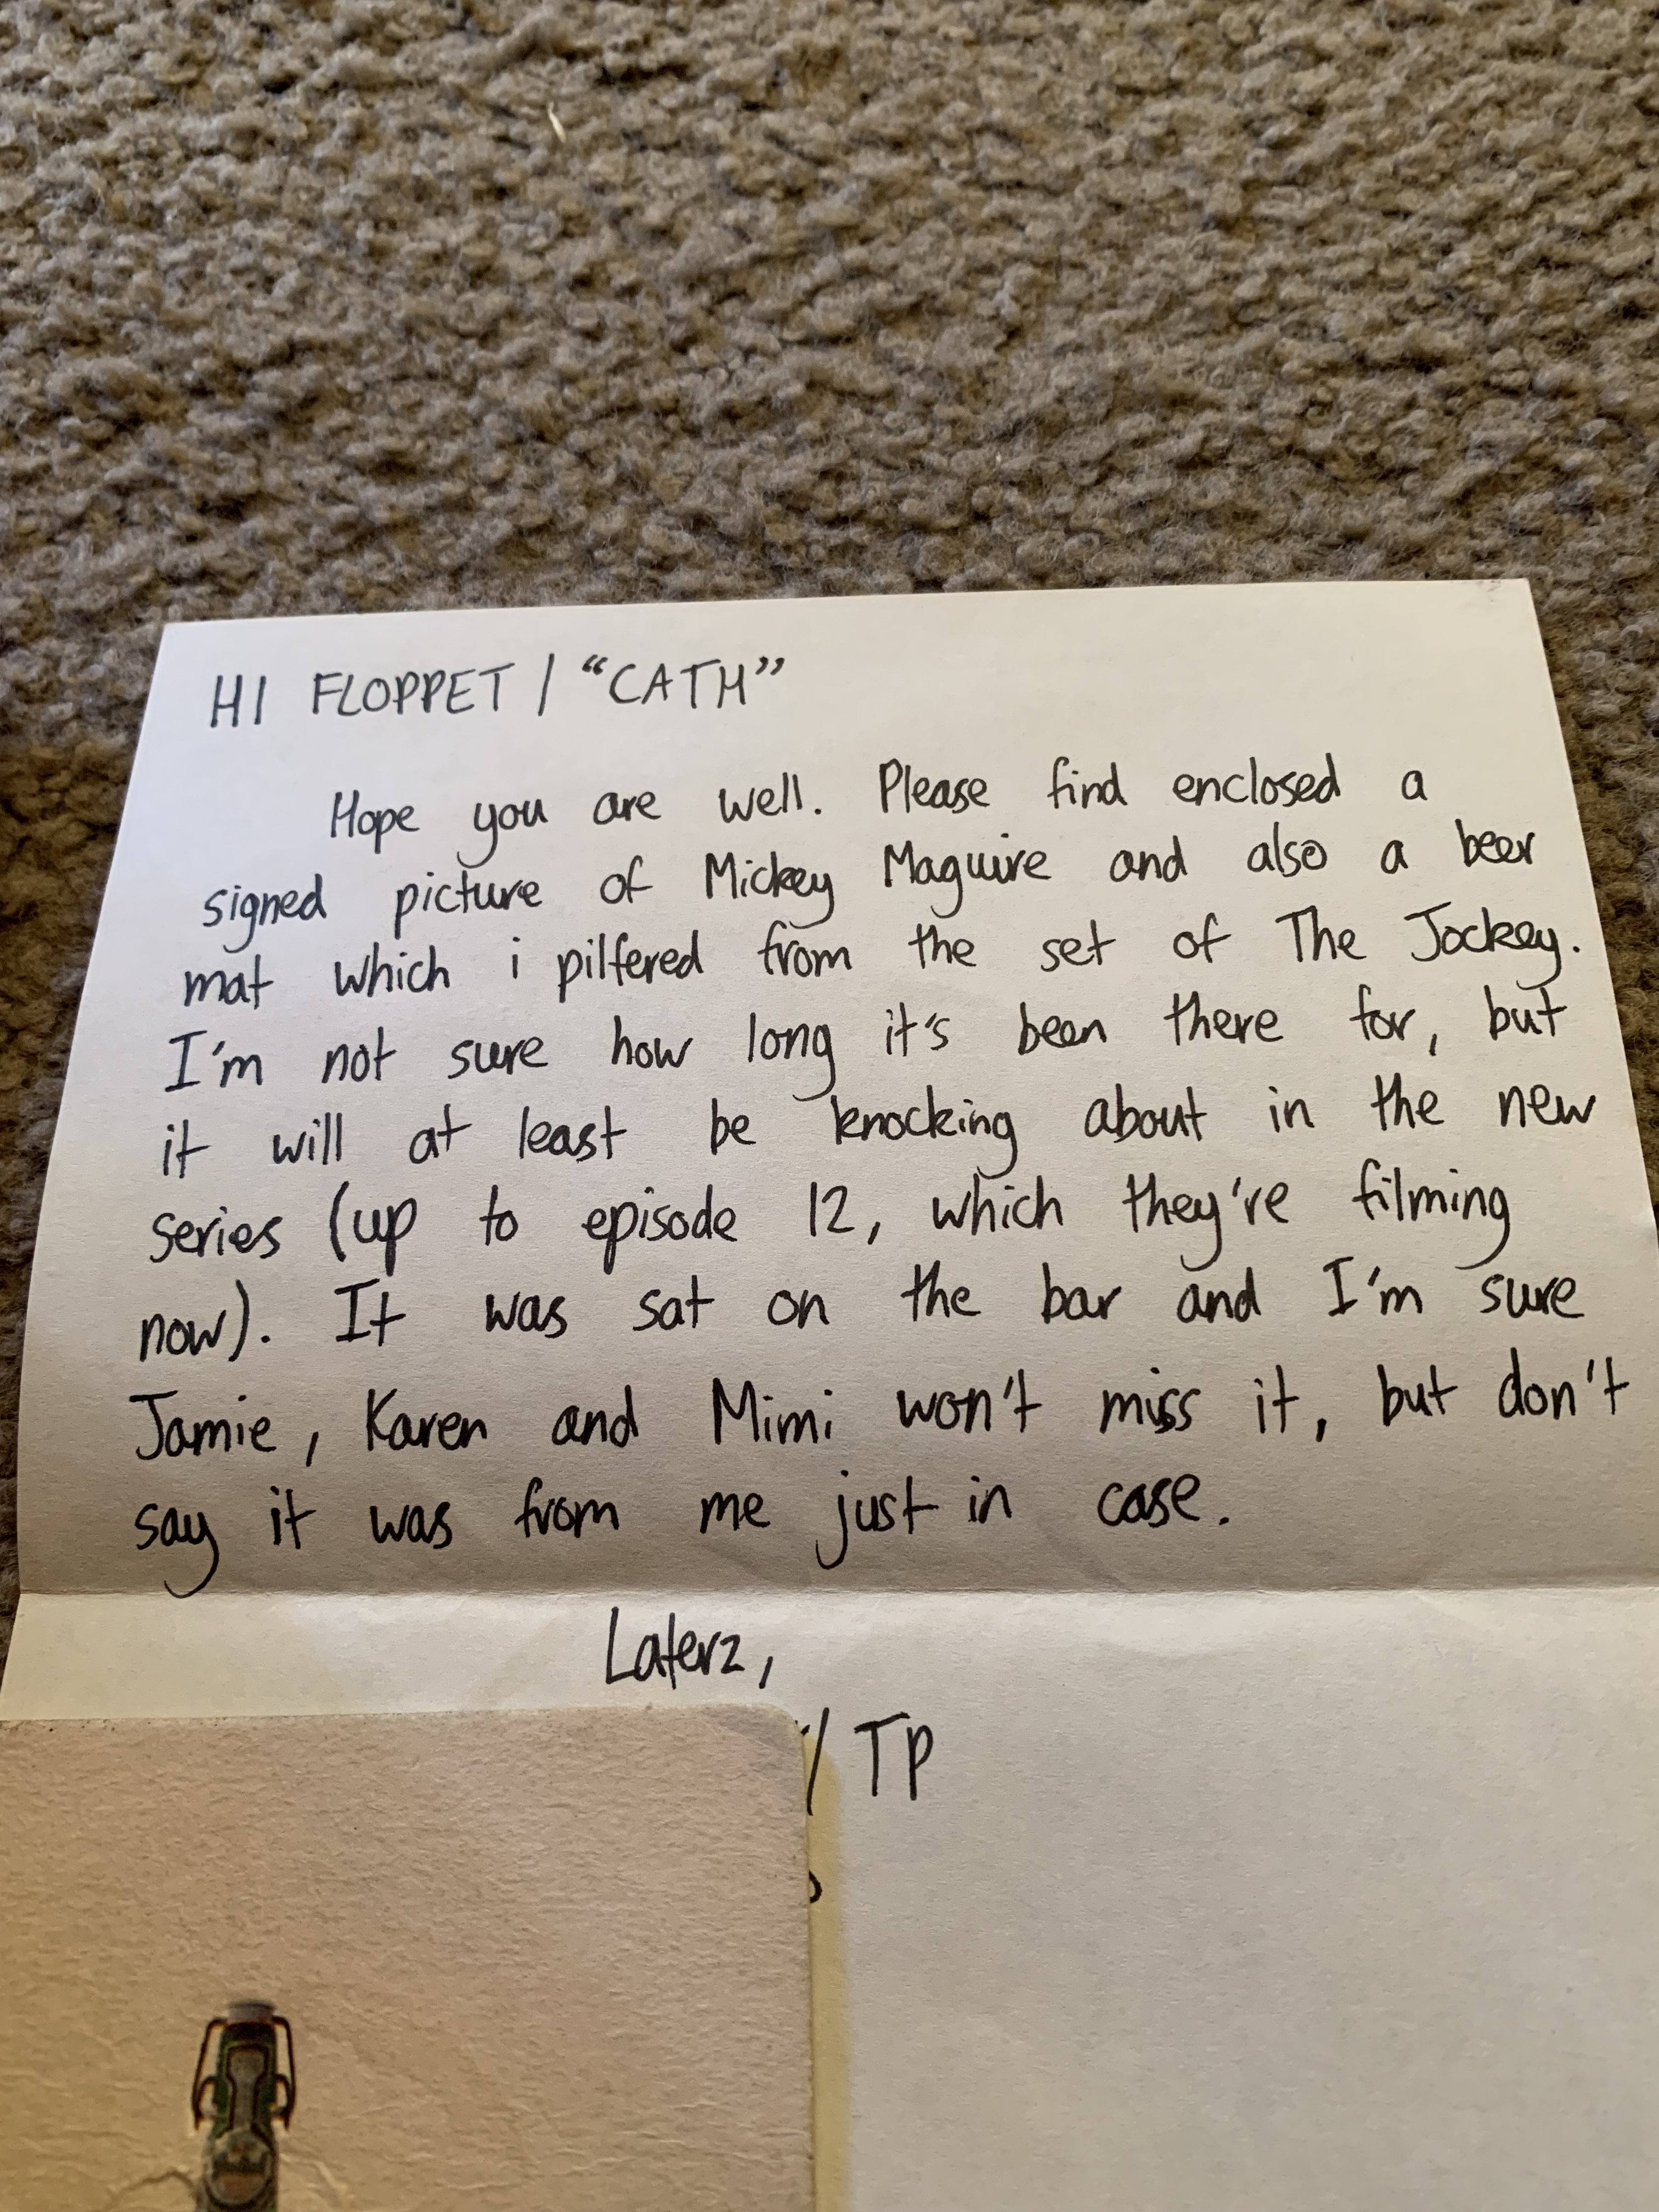 HI FLOPPET / "CATH"
Hope you are well. Please find enclosed a
signed picture of Mickey Maguire and also a beer
mat which i pilfered from the set of The Jockey.
I'm not sure how long it's been there for, but
it will at least be knocking about in the new
series (up to episode 12, which they're filming
now). It was sat on the bar and I'm sure
Jamie, Karen and Mimi won't miss it, but don't
say it was from me just in case.
Laterz,
/ TP